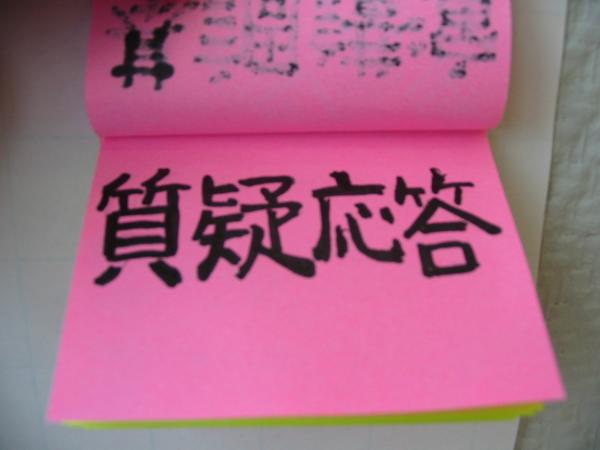 質疑応答